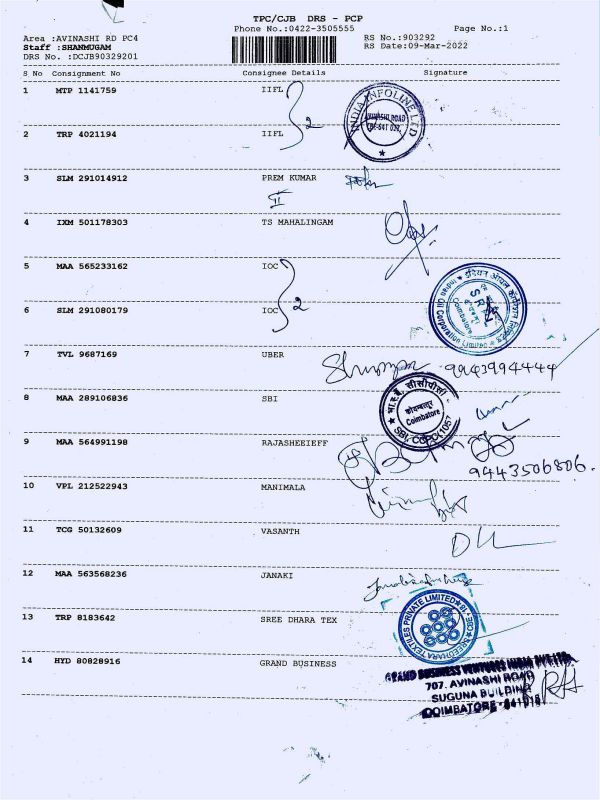 TPC/CJB DRS - PCP
Phone No.:0422-3505555 Page No.:1
Area :AVINASHI RD PC4 RS No.:903292
Staff :SHANMUGAM RS Date:09-Mar-2022
DRS No. :DCJB90329201
S No Consignment No Consignee Details Signature
1 MTP 1141759 IIFL
INDIA INFOLINE LTD
2
2 TRP 4021194 IIFL
3 SLM 291014912 PREM KUMAR
II
4 IXM 501178303 TS MAHALINGAM
5 MAA 565233162 IOC
2
6 SLM 291080179 IOC
7 TVL 9687169 UBER
9943994444
8 MAA 289106836 SBI
कोयम्बत्तूर
Coimbatore
SBI, CCPC(1057
9 MAA 564991198 RAJASHEEIEFF
9443506806.
10 VPL 212522943 MANIMALA
11 TCG 50132609 VASANTH
12 MAA 563568236 JANAKI
13 TRP 8183642 SREE DHARA TEX
SREEDHARA TEXTILES PRIVATE LIMITED
14 HYD 80828916 GRAND BUSINESS
GRAND BUSINESS VENTURES INDIA PVT.LTD.
707, AVINASHI ROAD
SUGUNA BUILDING
COIMBATORE - 641018